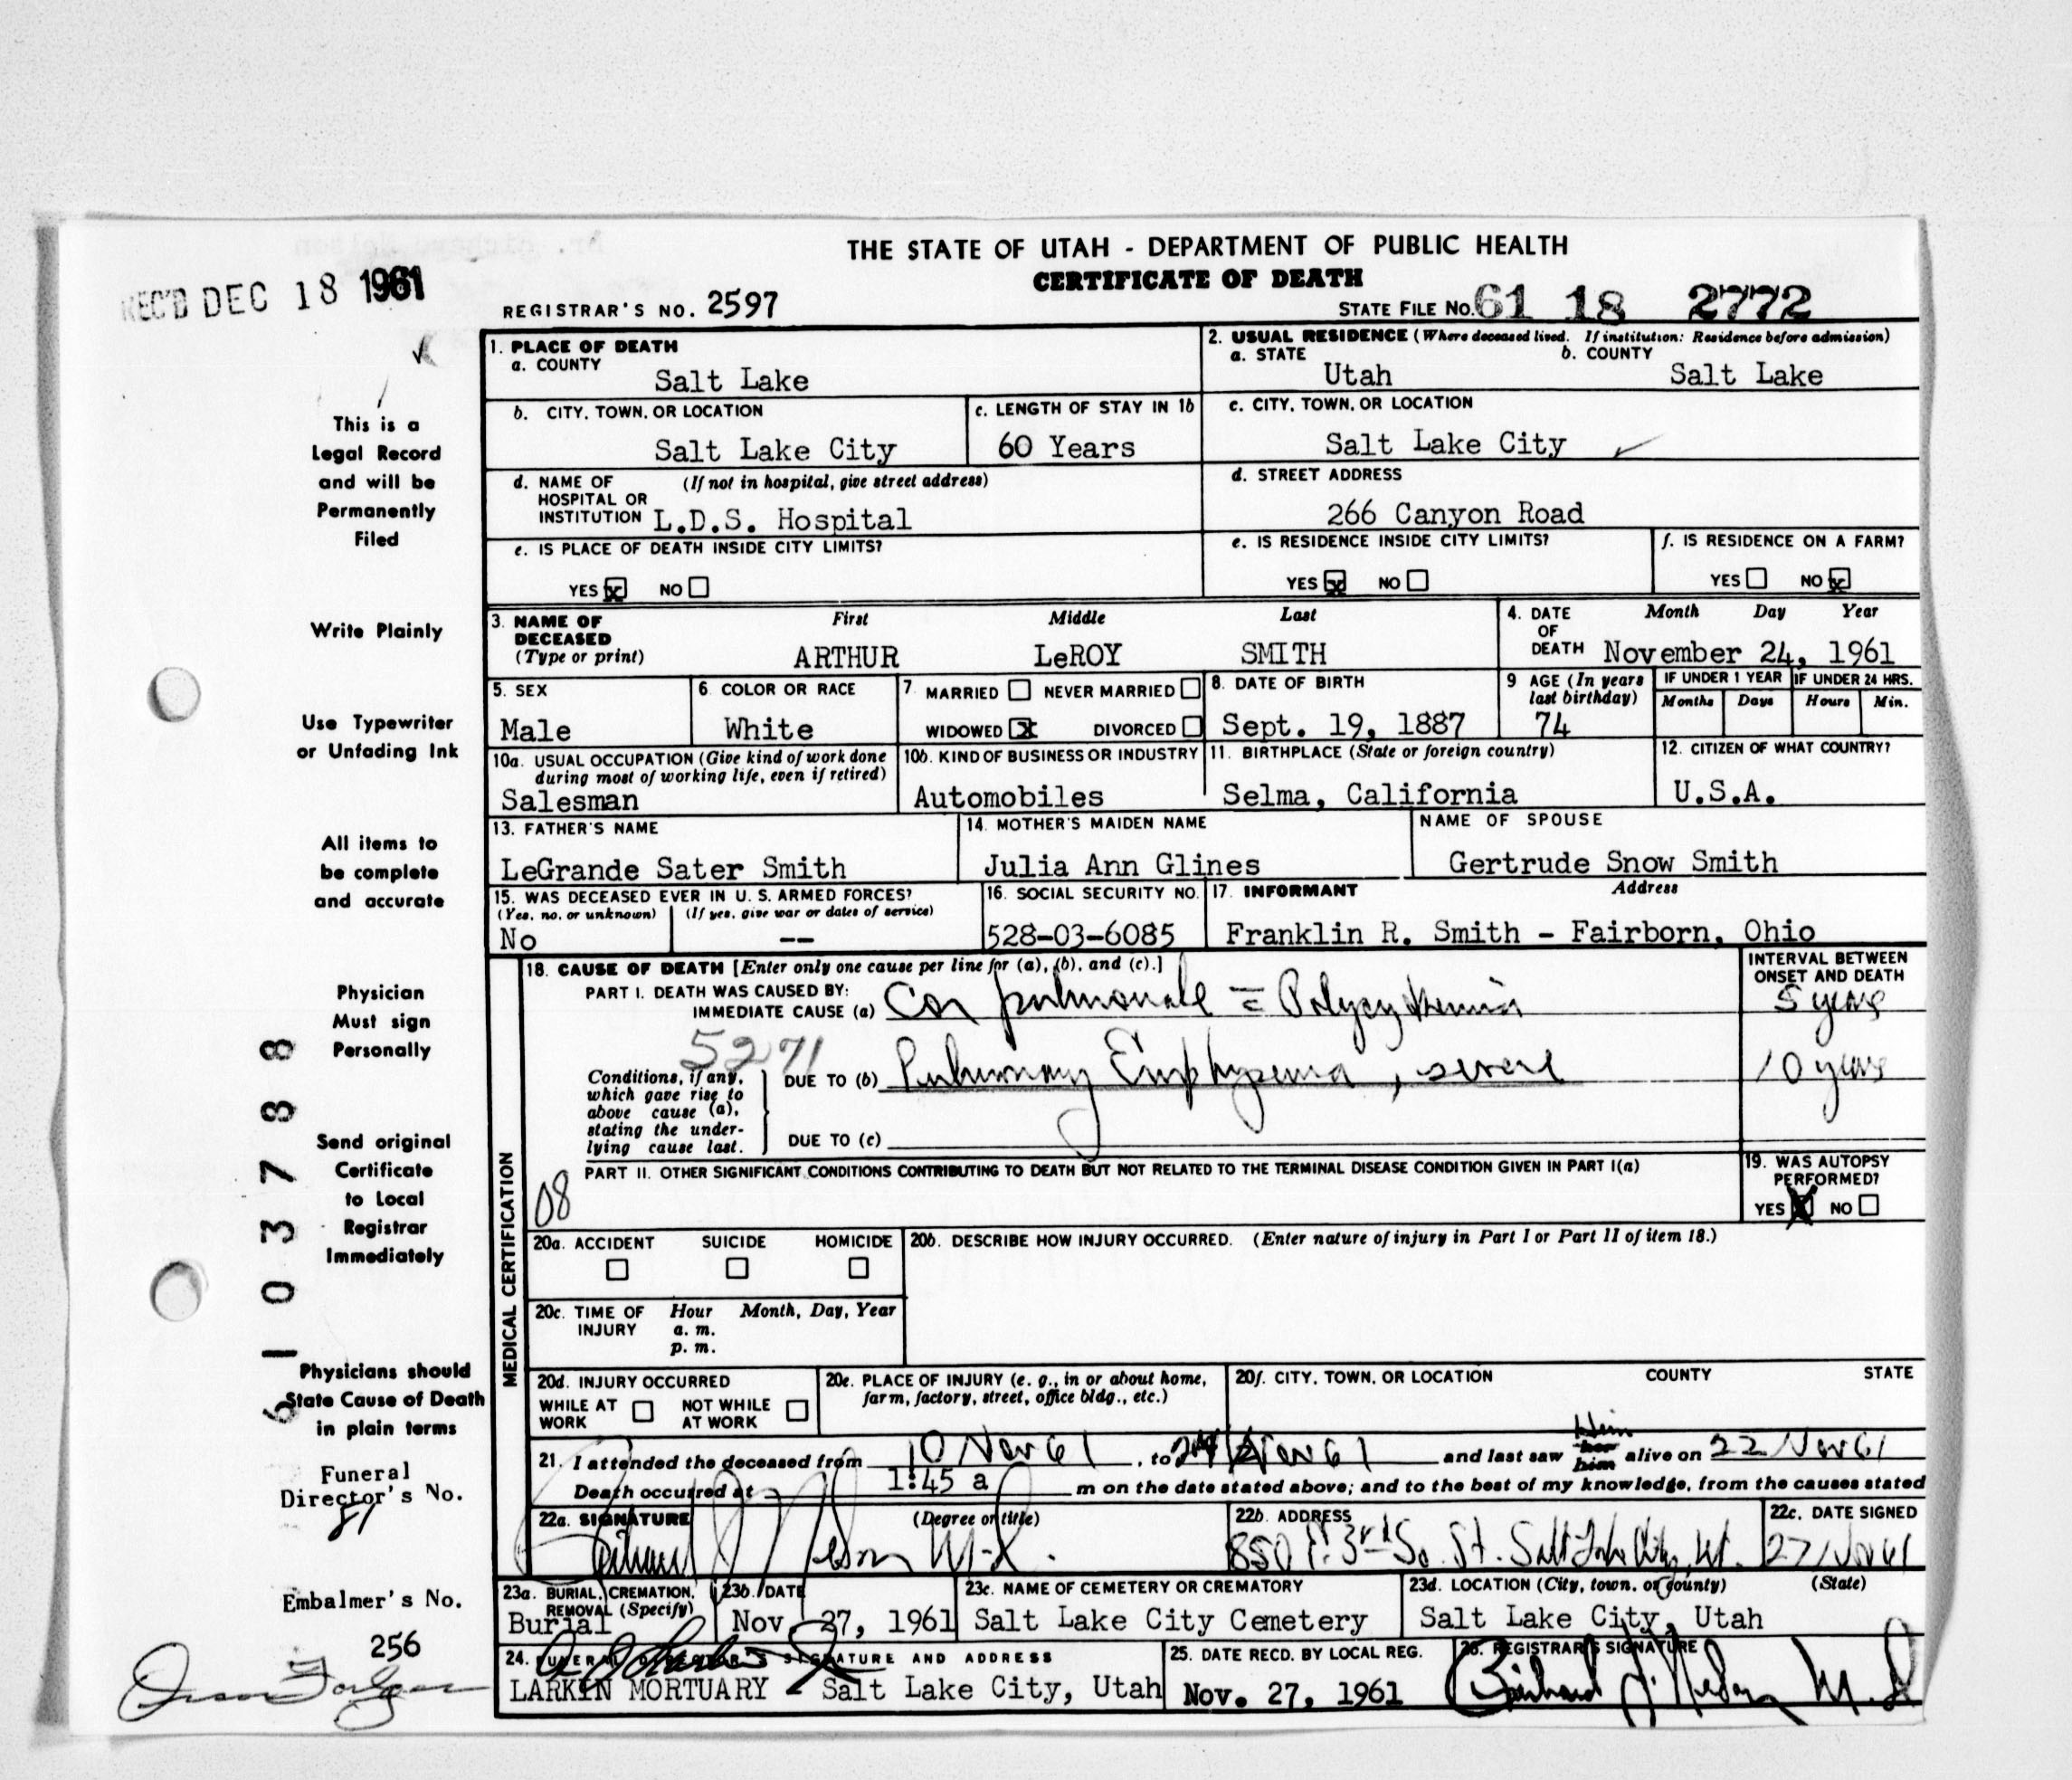 THE STATE OF UTAH - DEPARTMENT OF PUBLIC HEALTH
CERTIFICATE OF DEATH
REC'D DEC 18 1961
REGISTRAR'S NO. 2597
STATE FILE NO. 61 18 2772
1. PLACE OF DEATH
a. COUNTY
Salt Lake
2. USUAL RESIDENCE (Where deceased lived. If institution: Residence before admission)
a. STATE b. COUNTY
Utah Salt Lake
b. CITY, TOWN, OR LOCATION
Salt Lake City
c. LENGTH OF STAY IN 1b
60 Years
c. CITY, TOWN, OR LOCATION
Salt Lake City
d. NAME OF (If not in hospital, give street address)
HOSPITAL OR
INSTITUTION L.D.S. Hospital
d. STREET ADDRESS
266 Canyon Road
e. IS PLACE OF DEATH INSIDE CITY LIMITS?
YES x NO
e. IS RESIDENCE INSIDE CITY LIMITS?
YES x NO
f. IS RESIDENCE ON A FARM?
YES NO x
3. NAME OF DECEASED (Type or print)
First Middle Last
ARTHUR LeROY SMITH
4. DATE OF DEATH
Month Day Year
November 24, 1961
5. SEX
Male
6. COLOR OR RACE
White
7. MARRIED NEVER MARRIED
WIDOWED x DIVORCED
8. DATE OF BIRTH
Sept. 19, 1887
9 AGE (In years last birthday)
74
IF UNDER 1 YEAR
Months Days
IF UNDER 24 HRS.
Hours Min.
10a. USUAL OCCUPATION (Give kind of work done
during most of working life, even if retired)
Salesman
10b. KIND OF BUSINESS OR INDUSTRY
Automobiles
11. BIRTHPLACE (State or foreign country)
Selma, California
12. CITIZEN OF WHAT COUNTRY?
U.S.A.
13. FATHER'S NAME
LeGrande Sater Smith
14. MOTHER'S MAIDEN NAME
Julia Ann Glines
NAME OF SPOUSE
Gertrude Snow Smith
15. WAS DECEASED EVER IN U. S. ARMED FORCES?
(Yes, no, or unknown) (If yes, give war or dates of service)
No --
16. SOCIAL SECURITY NO.
528-03-6085
17. INFORMANT Address
Franklin R. Smith - Fairborn, Ohio
MEDICAL CERTIFICATION
18. CAUSE OF DEATH [Enter only one cause per line for (a), (b), and (c).]
PART I. DEATH WAS CAUSED BY:
IMMEDIATE CAUSE (a) Cor pulmonale c̄ Polycythemia
INTERVAL BETWEEN
ONSET AND DEATH
5 years
5271
Conditions, if any,
which gave rise to
above cause (a),
stating the under-
lying cause last.
DUE TO (b) Pulmonary Emphysema, severe
10 years
DUE TO (c)
PART II. OTHER SIGNIFICANT CONDITIONS CONTRIBUTING TO DEATH BUT NOT RELATED TO THE TERMINAL DISEASE CONDITION GIVEN IN PART I(a)
08
19. WAS AUTOPSY
PERFORMED?
YES X NO
20a. ACCIDENT SUICIDE HOMICIDE
20b. DESCRIBE HOW INJURY OCCURRED. (Enter nature of injury in Part I or Part II of item 18.)
20c. TIME OF INJURY
Hour Month, Day, Year
a. m.
p. m.
20d. INJURY OCCURRED
WHILE AT WORK NOT WHILE AT WORK
20e. PLACE OF INJURY (e. g., in or about home,
farm, factory, street, office bldg., etc.)
20f. CITY, TOWN, OR LOCATION COUNTY STATE
Him
21. I attended the deceased from 10 Nov 61, to 24 Nov 61 and last saw her him alive on 22 Nov 61
Death occurred at 1:45 a m on the date stated above; and to the best of my knowledge, from the causes stated
22a. SIGNATURE (Degree or title)
Richard J. Nelson M.D.
22b. ADDRESS
850 E. 3rd So. St. Salt Lake City, Ut.
22c. DATE SIGNED
27 Nov 61
23a. BURIAL, CREMATION,
REMOVAL (Specify)
Burial
23b. DATE
Nov. 27, 1961
23c. NAME OF CEMETERY OR CREMATORY
Salt Lake City Cemetery
23d. LOCATION (City, town, or county) (State)
Salt Lake City, Utah
24. FUNERAL DIRECTOR'S SIGNATURE AND ADDRESS
LARKIN MORTUARY - Salt Lake City, Utah
25. DATE RECD. BY LOCAL REG.
Nov. 27, 1961
26. REGISTRAR'S SIGNATURE
Richard J. Nelson M.D.
This is a
Legal Record
and will be
Permanently
Filed
Write Plainly
Use Typewriter
or Unfading Ink
All items to
be complete
and accurate
Physician
Must sign
Personally
Send original
Certificate
to Local
Registrar
Immediately
Physicians should
State Cause of Death
in plain terms
Funeral
Director's No.
81
Embalmer's No.
256
6103788